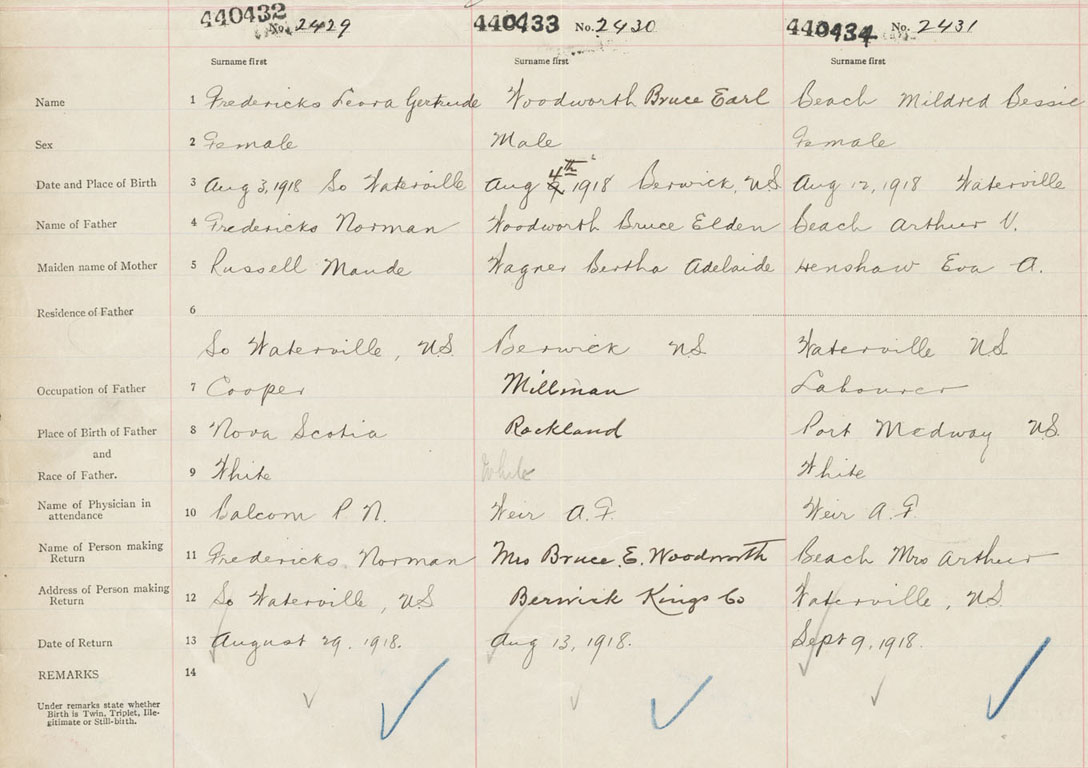 440432 No. 2429 440433 No. 2430 440434 No. 2431
Surname first Surname first Surname first
Name 1 Fredericks Leora Gertrude Woodworth Bruce Earl Beach Mildred Bessie
Sex 2 Female Male Female
Date and Place of Birth 3 Aug 3, 1918 So Waterville Aug 4th 1918 Berwick, NS Aug 12, 1918 Waterville
Name of Father 4 Fredericks Norman Woodworth Bruce Elden Beach Arthur V.
Maiden name of Mother 5 Russell Maude Wagner Bertha Adelaide Henshaw Eva A.
Residence of Father 6
So Waterville, NS. Berwick NS Waterville NS
Occupation of Father 7 Cooper Millman Labourer
Place of Birth of Father 8 Nova Scotia Rockland Port Medway NS.
and
Race of Father. 9 White White White
Name of Physician in
attendance 10 Balcom P. N. Weir A. F. Weir A. F.
Name of Person making
Return 11 Fredericks, Norman Mrs Bruce. E. Woodworth Beach Mrs Arthur
Address of Person making
Return 12 So Waterville, NS Berwick Kings Co Waterville, NS
Date of Return 13 August 29. 1918. Aug 13, 1918. Sept 9, 1918.
REMARKS 14
Under remarks state whether
Birth is Twin, Triplet, Ille-
gitimate or Still-birth.